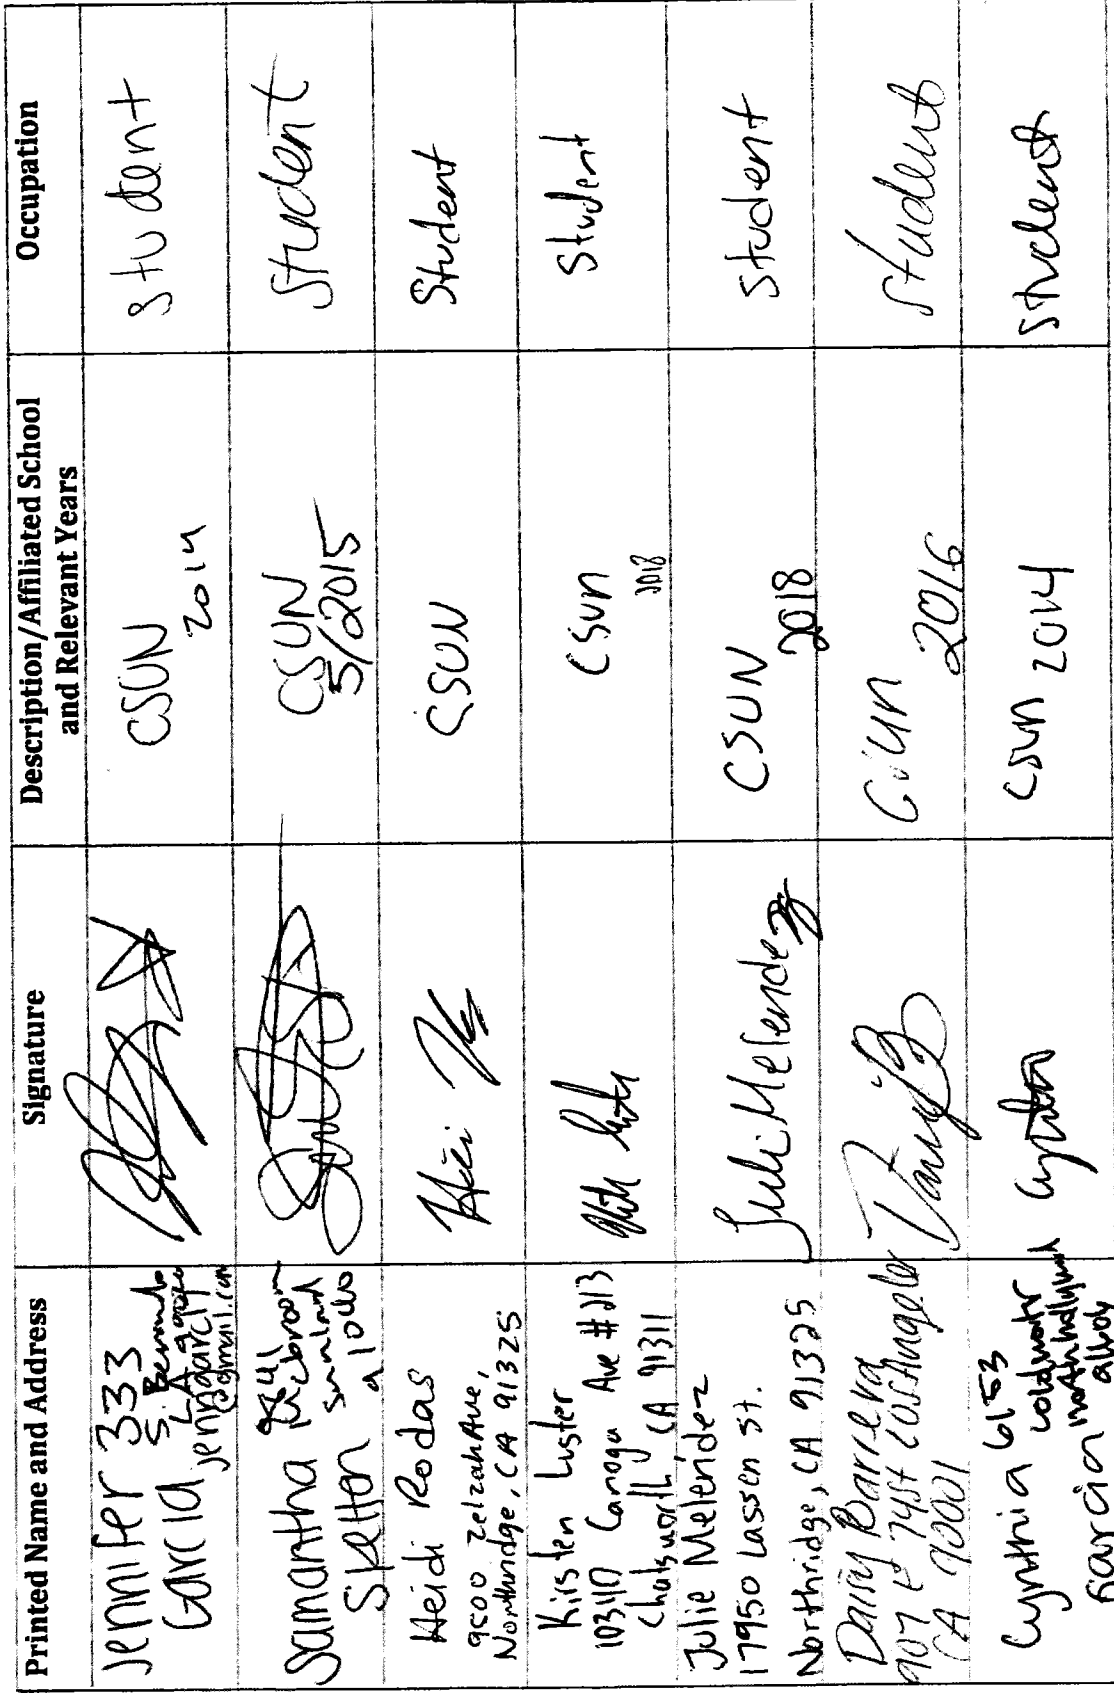 Printed Name and Address
Signature
Description/Affiliated School
and Relevant Years
Occupation
Jennifer 333
Garcia
S.
LA
jenngarcia
@gmail.com
CSUN
2014
student
Samantha
Skelton
Mcbroom
sunland
CSUN
5/2015
student
Heidi Rodas
9500 Zelzah Ave,
Northridge, CA 91325
CSUN
Student
Kirsten Luster
10340 Canoga Ave #213
Chatsworth, CA 91311
CSUN
2018
Student
Julie Melendez
17950 Lassen st.
Northridge, CA 91325
Juli Melendez
CSUN
2018
student
Daisy Barrera
907 E 74st Los Angeles
CA 90001
Csun
2016
student
Cynthia 6153
coldwatr
north hollywood
Garcia
Csun 2014
student